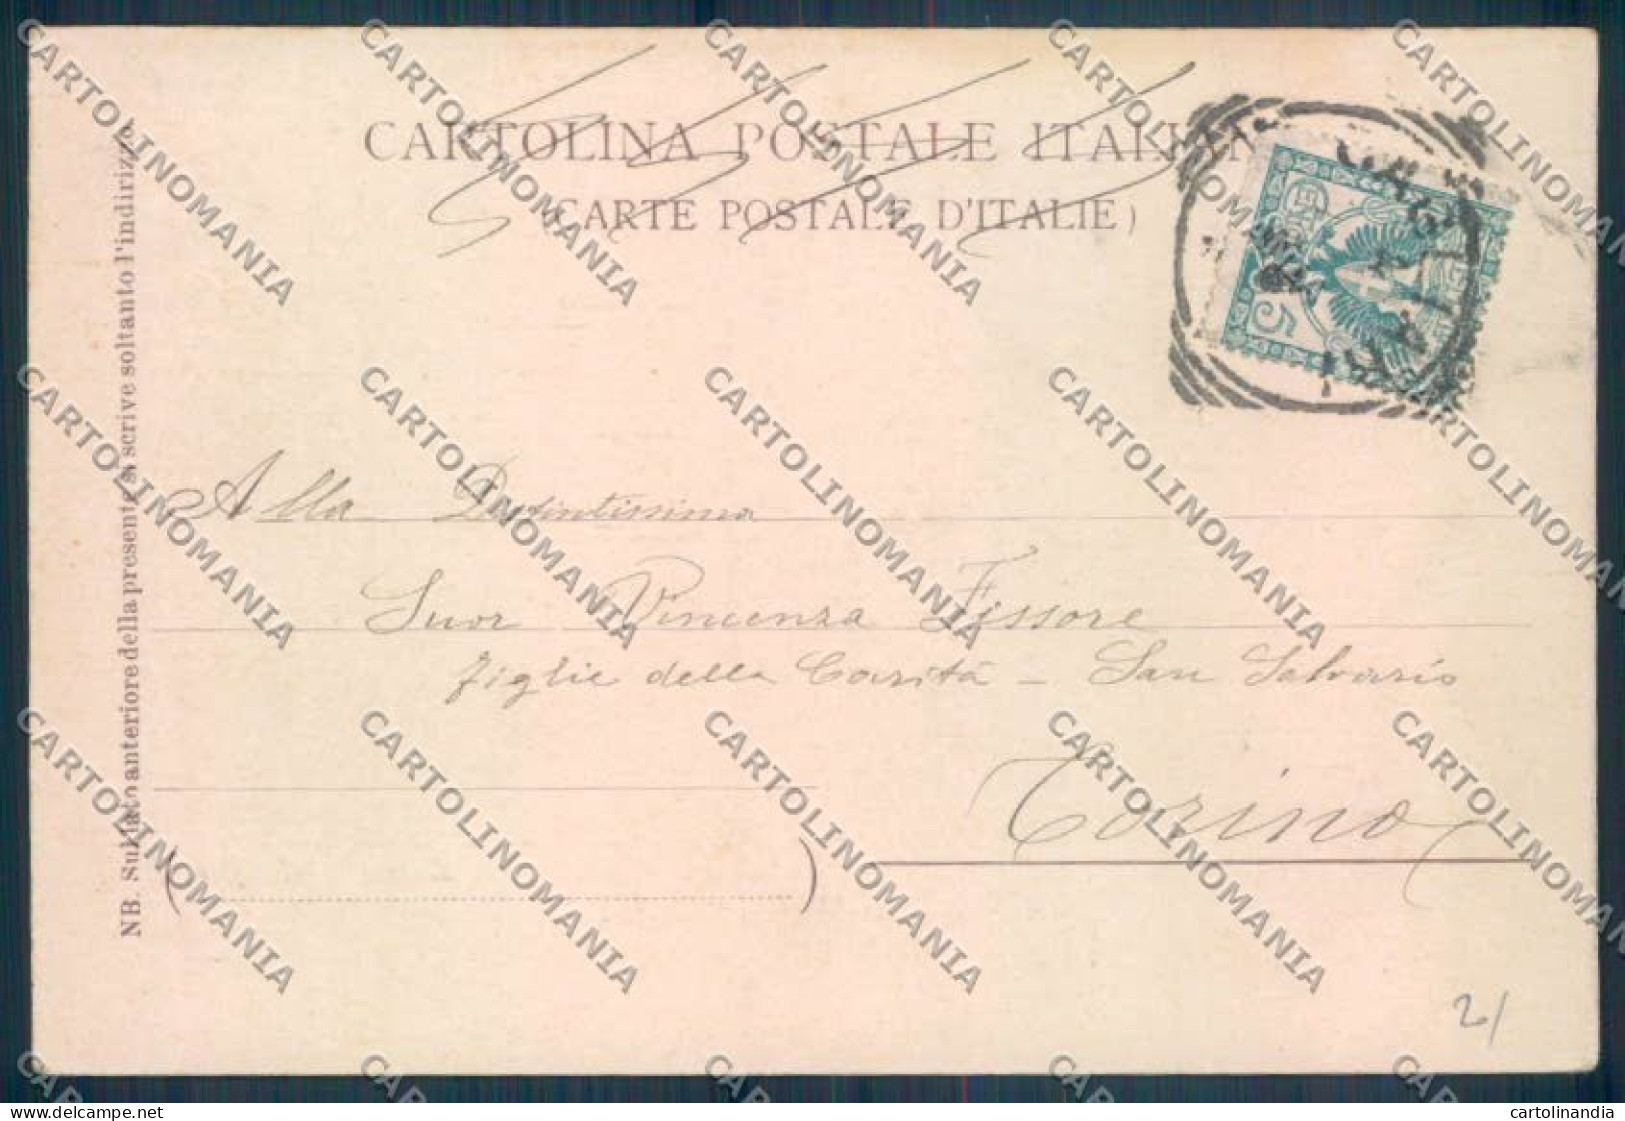 CARTOLINA POSTALE ITALIAN
(CARTE POSTALE D'ITALIE)
5
NB. Sul lato anteriore della presente si scrive soltanto l'indirizzo.
Alla Distintissima
Suor Vincenza Fissore
figlie della Carità - San Salvario
Torino
2/
CARTOLINOMANIA
cartolinandia